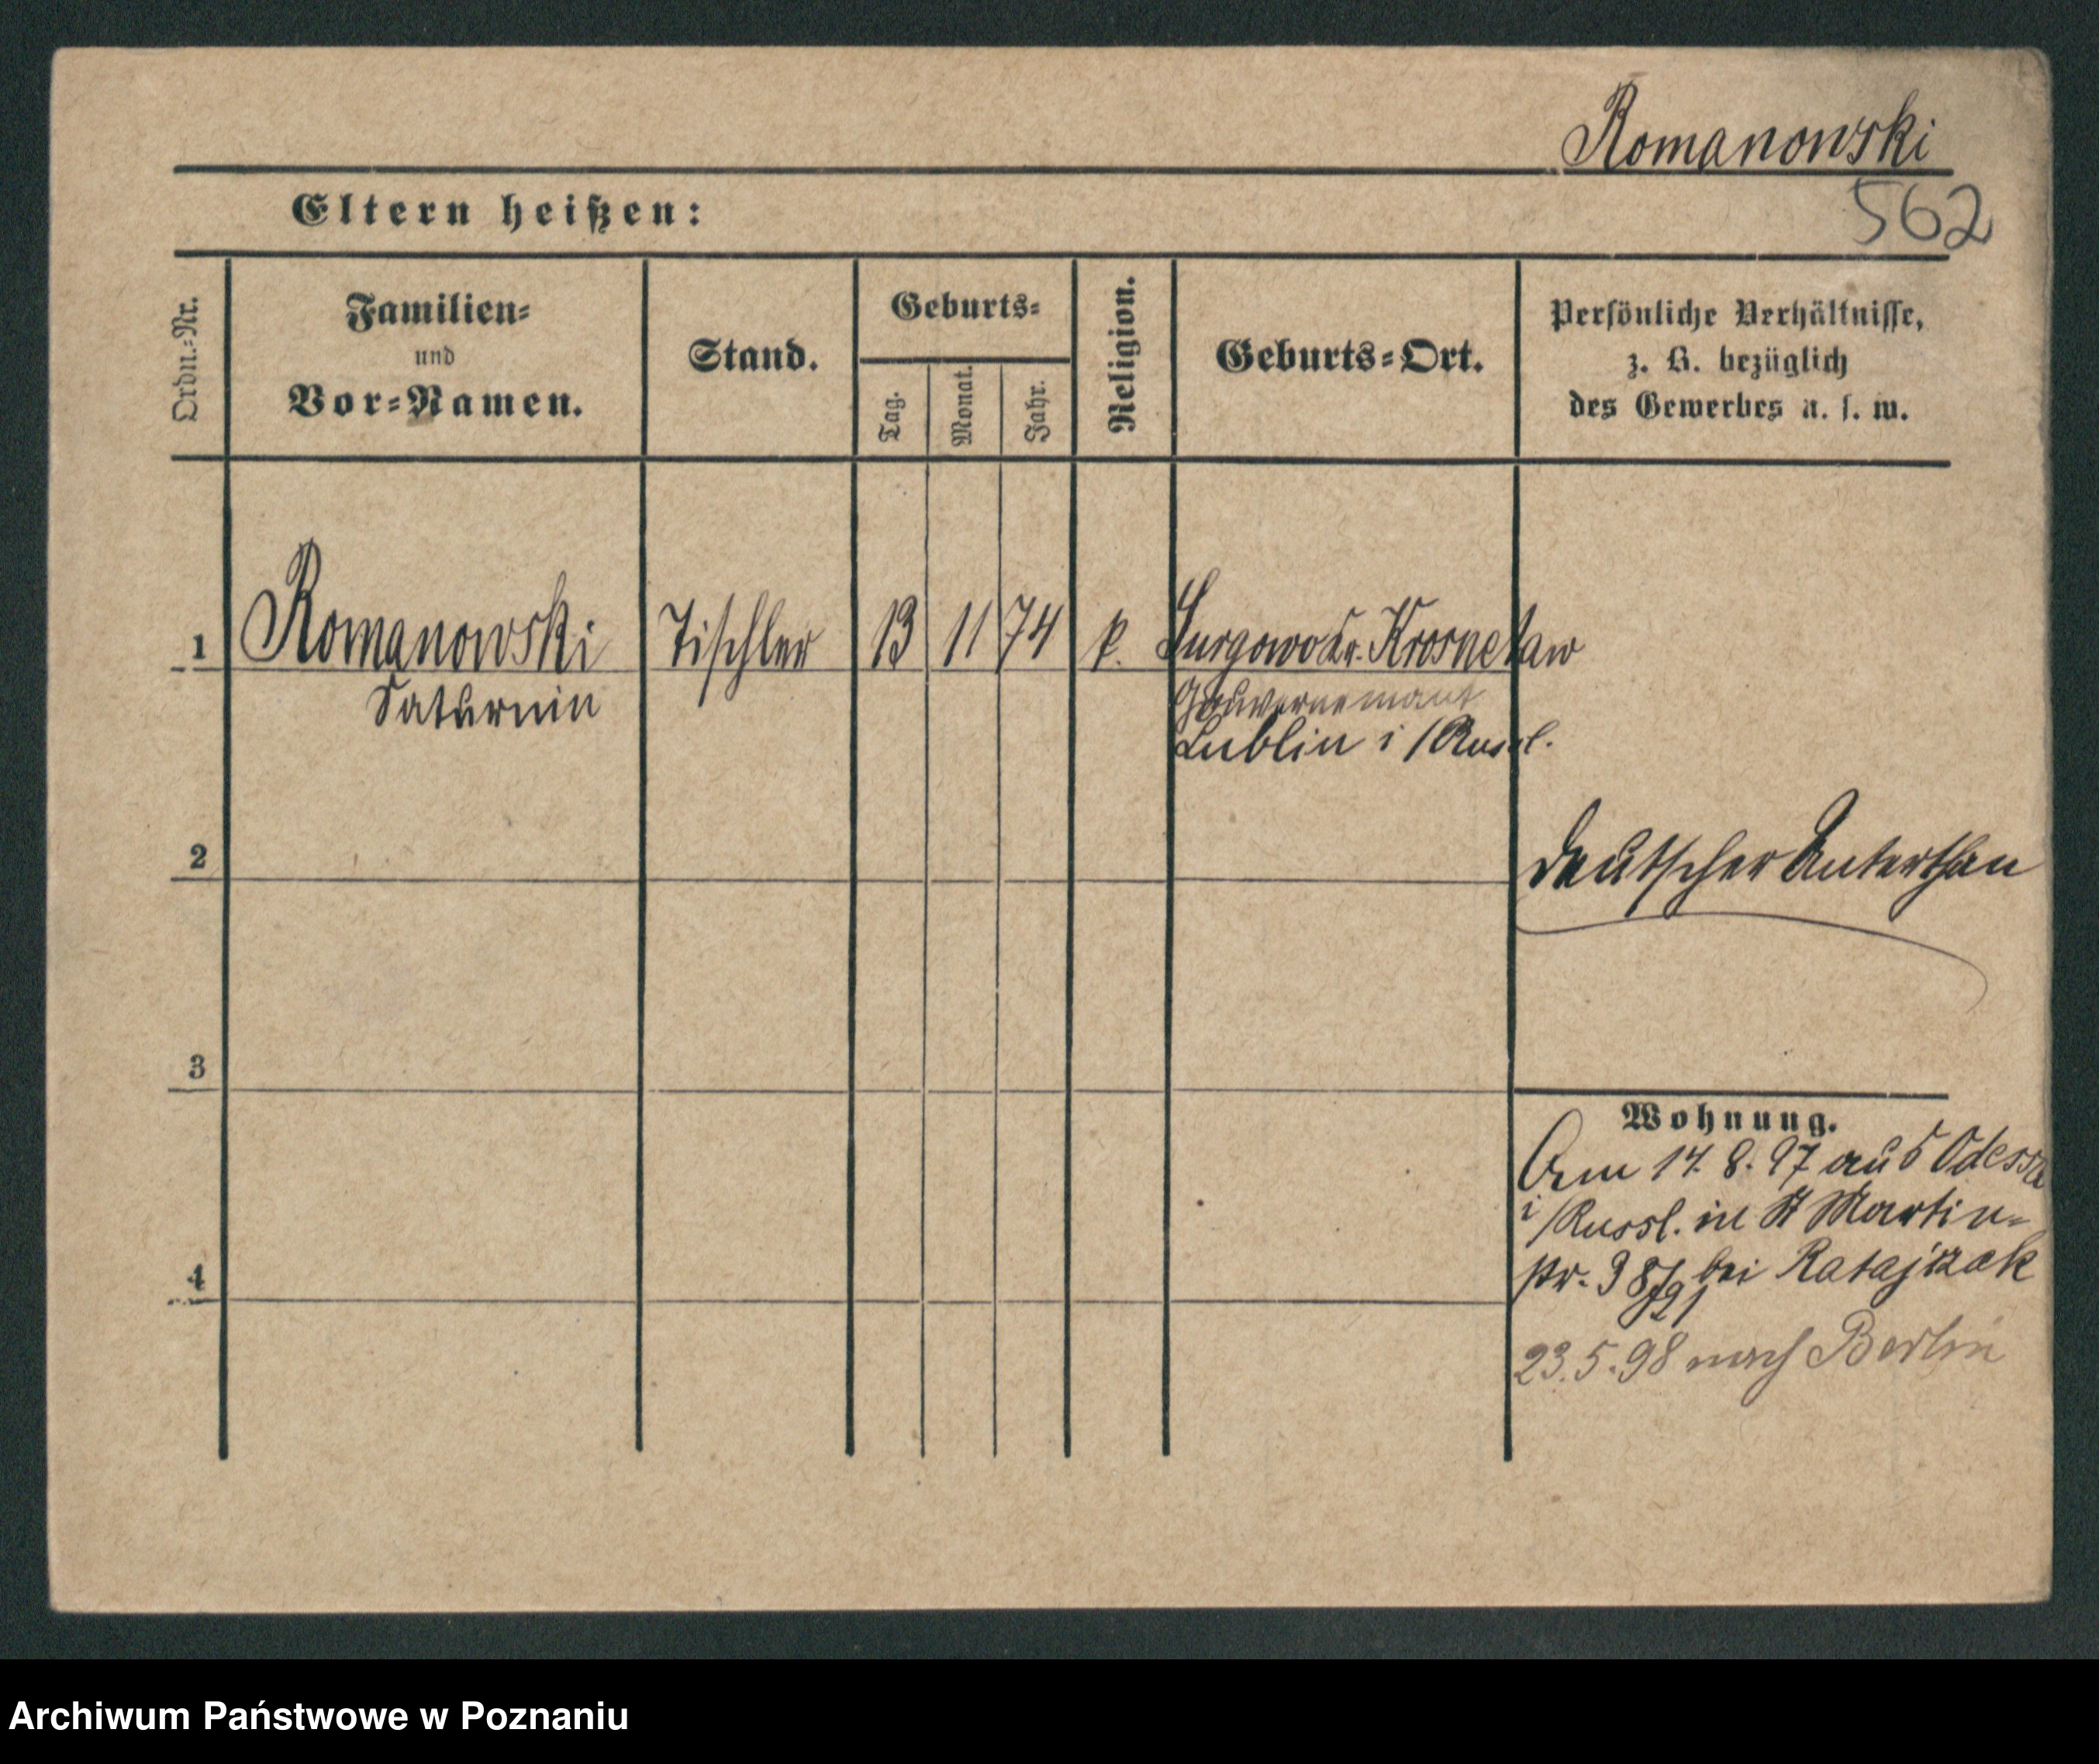 Romanowski
562
Eltern heißen:
Ordn.-Nr.
Familien-
und
Vor-Namen.
Stand.
Geburts-
Tag.
Monat.
Jahr.
Religion.
Geburts-Ort.
Persönliche Verhältnisse,
z. B. bezüglich
des Gewerbes u. s. w.
1 Romanowski Tischler 13 11 74 k. Surgowo Kr. Krosnetaw
Saturnin
Gouvernemant
Lublin i/Russl.
2
deutscher Unterthan
3
Wohnung.
Am 14. 8. 97 aus Odessa
i/Russl. in St Martin-
str. 38 bei Ratajczak
4
23.5.98 nach Berlin
Archiwum Państwowe w Poznaniu